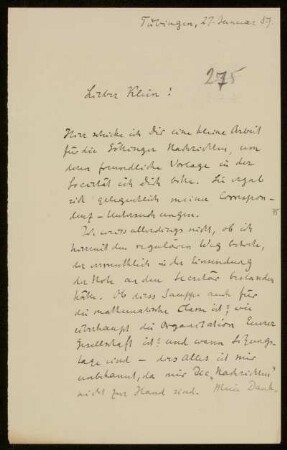 Tübingen, 27. Januar 89
275
Lieber Klein!
Hier schicke ich Dir eine kleine Arbeit
für die Göttinger Nachrichten, um
deren freundliche Vorlage in der
Societät ich Dich bitte. Sie ergab
sich gelegentlich meiner Correspon-
denz-Untersuchungen.
Ich weiss allerdings nicht, ob ich
hiermit den regulären Weg betrete,
der vermuthlich in der Einsendung
der Note an den Secretär bestanden
hätte. Ob dieses Sauppe auch für
die mathematische Classe ist; wie
überhaupt die Organisation Eurer
Gesellschaft ist; und wann Sitzungs-
tage sind – das alles ist mir
unbekannt, da mir die „Nachrichten"
nicht zur Hand sind. Mein Dank